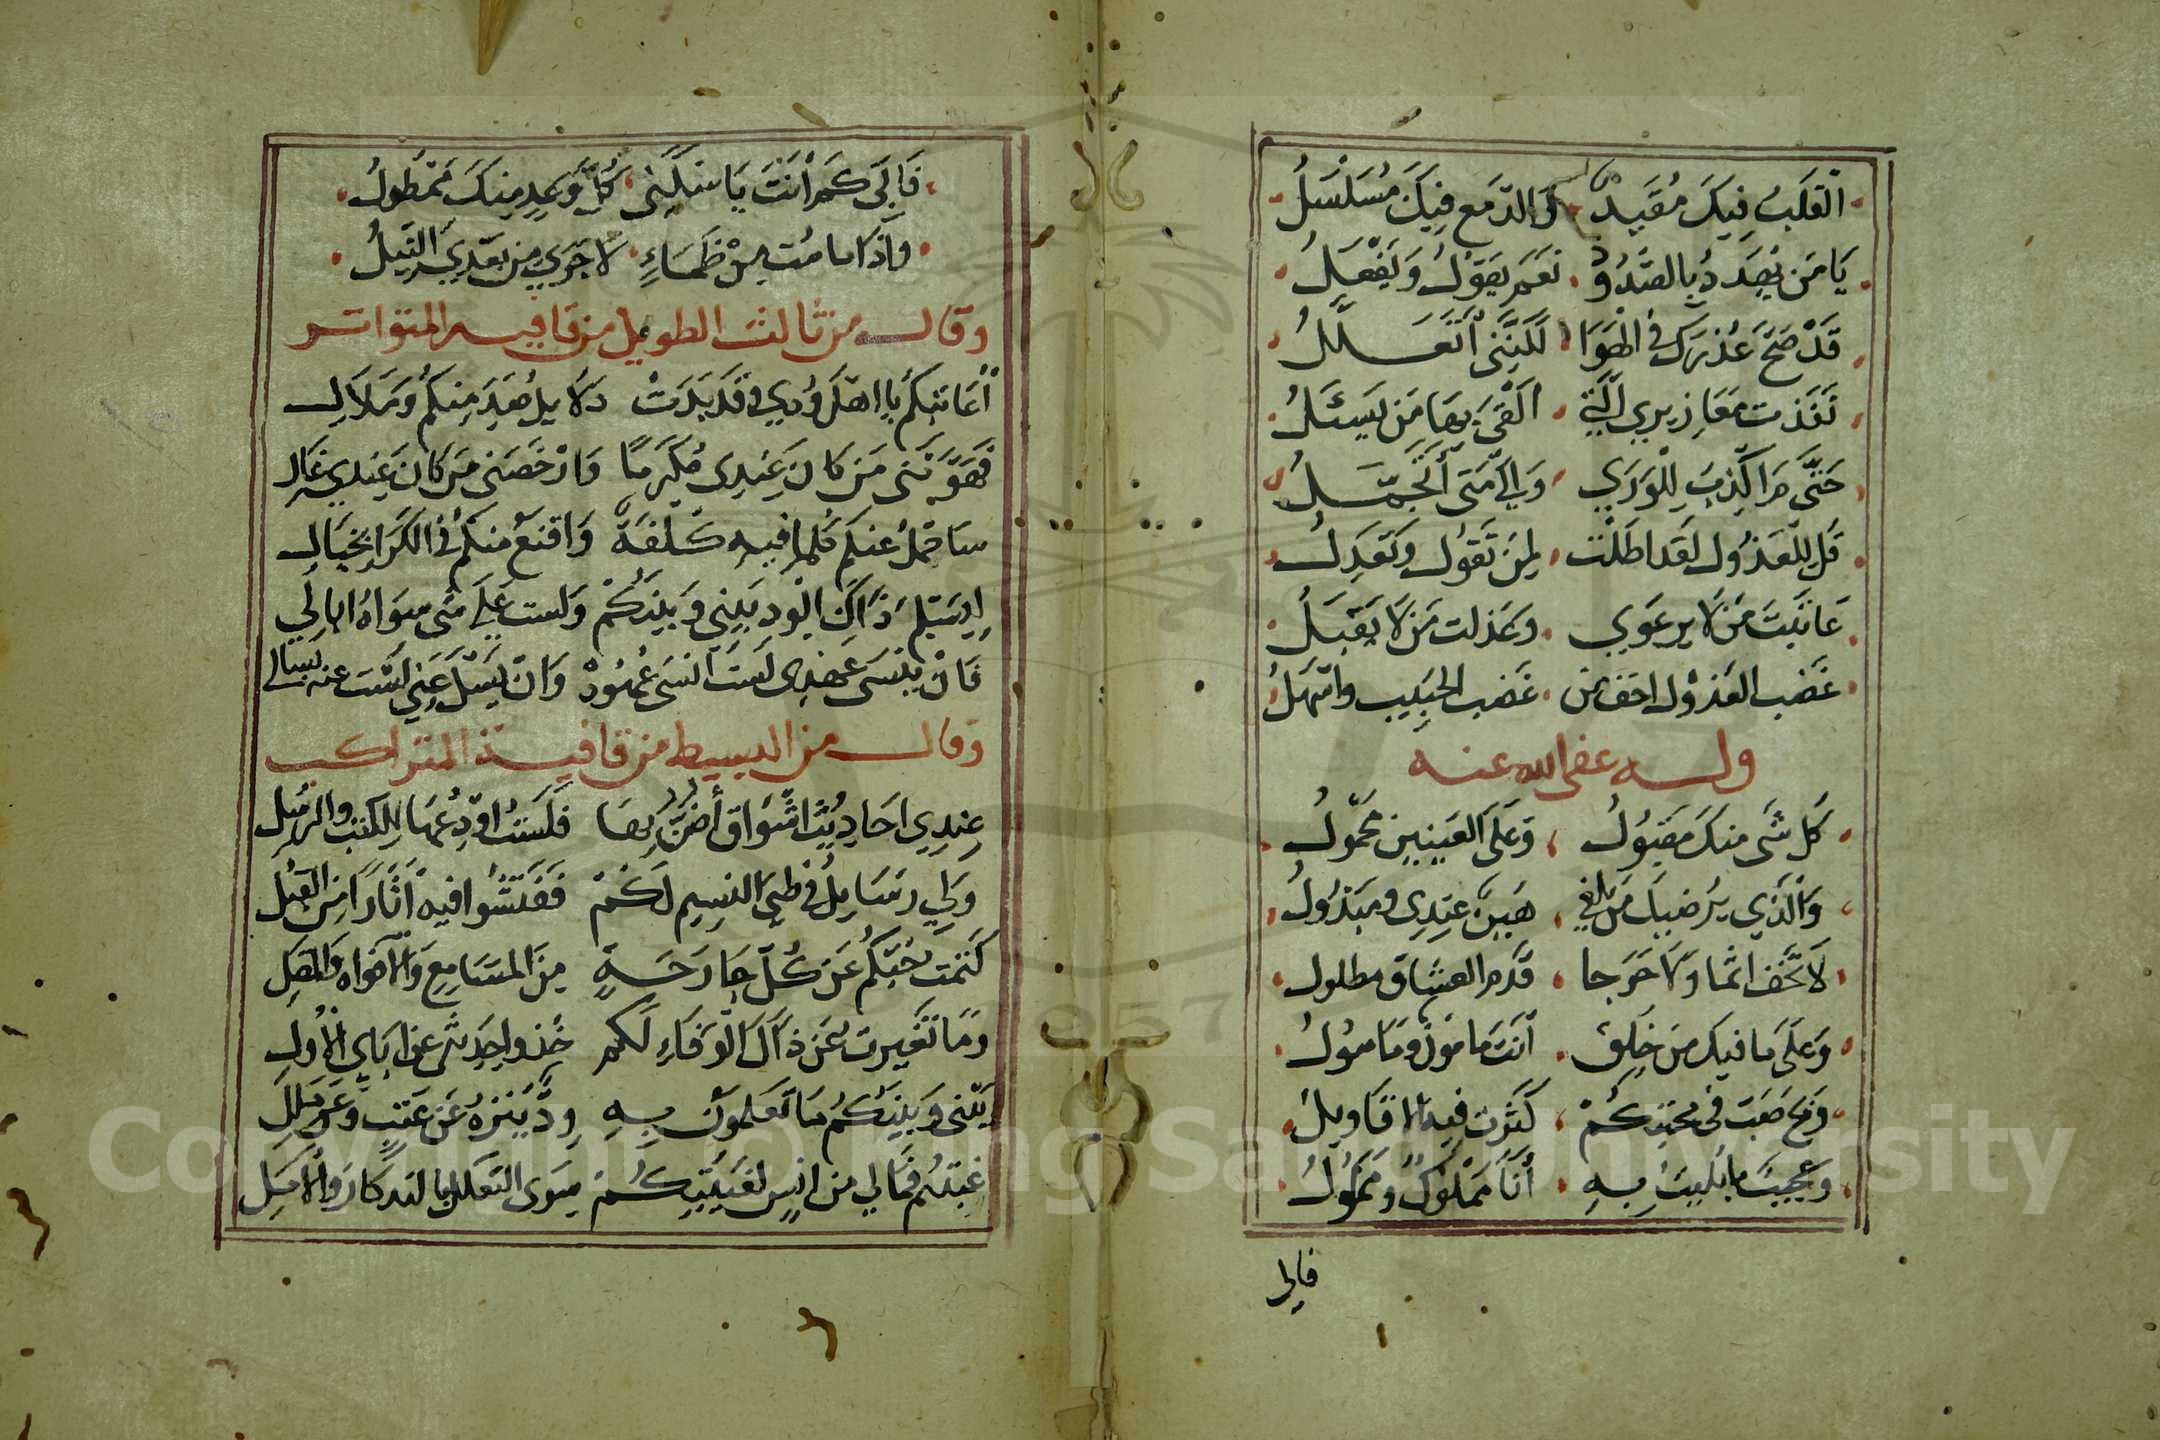 القلب فيك مقيد والدمع فيك مسلسل
يا من يهدد بالصدود نعم يقول ويفعل
قد صح عذرك في الهوا لكنني أتعلل
نفذت معاذيري التي القى بها من يسئل
حتى م اكذب للورى والى متى أتجمل
قل للعذول لقد اطلت لمن تقول وتعذل
عاتبت من لا يرعوي وعذلت من لا يقبل
غضب العذول اخف من غضب الحبيب واسهل
وله عفى الله عنه
كل شى منك مقبول وعلى العينين محمول
والذي يرضيك من تلفي هين عندى ومبذول
لا تخف اثما ولا حرجا فدم العشاق مطلول
وعلى ما فيك من خلق انت مامون ومامول
ويح صب في محبتكم كثرت فيه الاقاويل
وعجيب ما بليت به أنا مملوك ومملول
فالى
فالى كم أنت يا سكني كل وعد منك ممطول
واذا ما مت من ظماء لا جرى من بعدي النيل
وقال من ثالث الطويل من قافيه المتواتر
أعاتبكم يا اهل ودي وقد بدت دلايل صد منكم وملال
فهونتنى من كان عندى مكرما وارخصنى من كان عندي غال
ساحمل عنكم كلما فيه كلفة واقنع منكم في الكرا بخيال
ايسلم ذاك الود بينى وبينكم ولست على شى سواه ابالي
فان ينسى عهدى لست انسى عهوده وان يسل عني لست عنه بسالى
وقال من البسيط من قافية المتراكب
عندي احاديث اشواق أضن بها فلست اودعها للكتب والرسل
ولي رسايل في طى النسيم لكم ففتشوا فيه اثارا من القبل
كتمت حبكم عن كل جارحة من المسامع والافواه والمقل
وما تغيرت عن ذاك الوفاء لكم خذوا حديثى عن ابائى الاول
بيني وبينكم ما تعلمون به ود ينزه عن عتب وعن ملل
غبتم فما لي من انس لغيبتكم سوى التعلل بالتذكار والامل
Copyright © King Saud University
1957